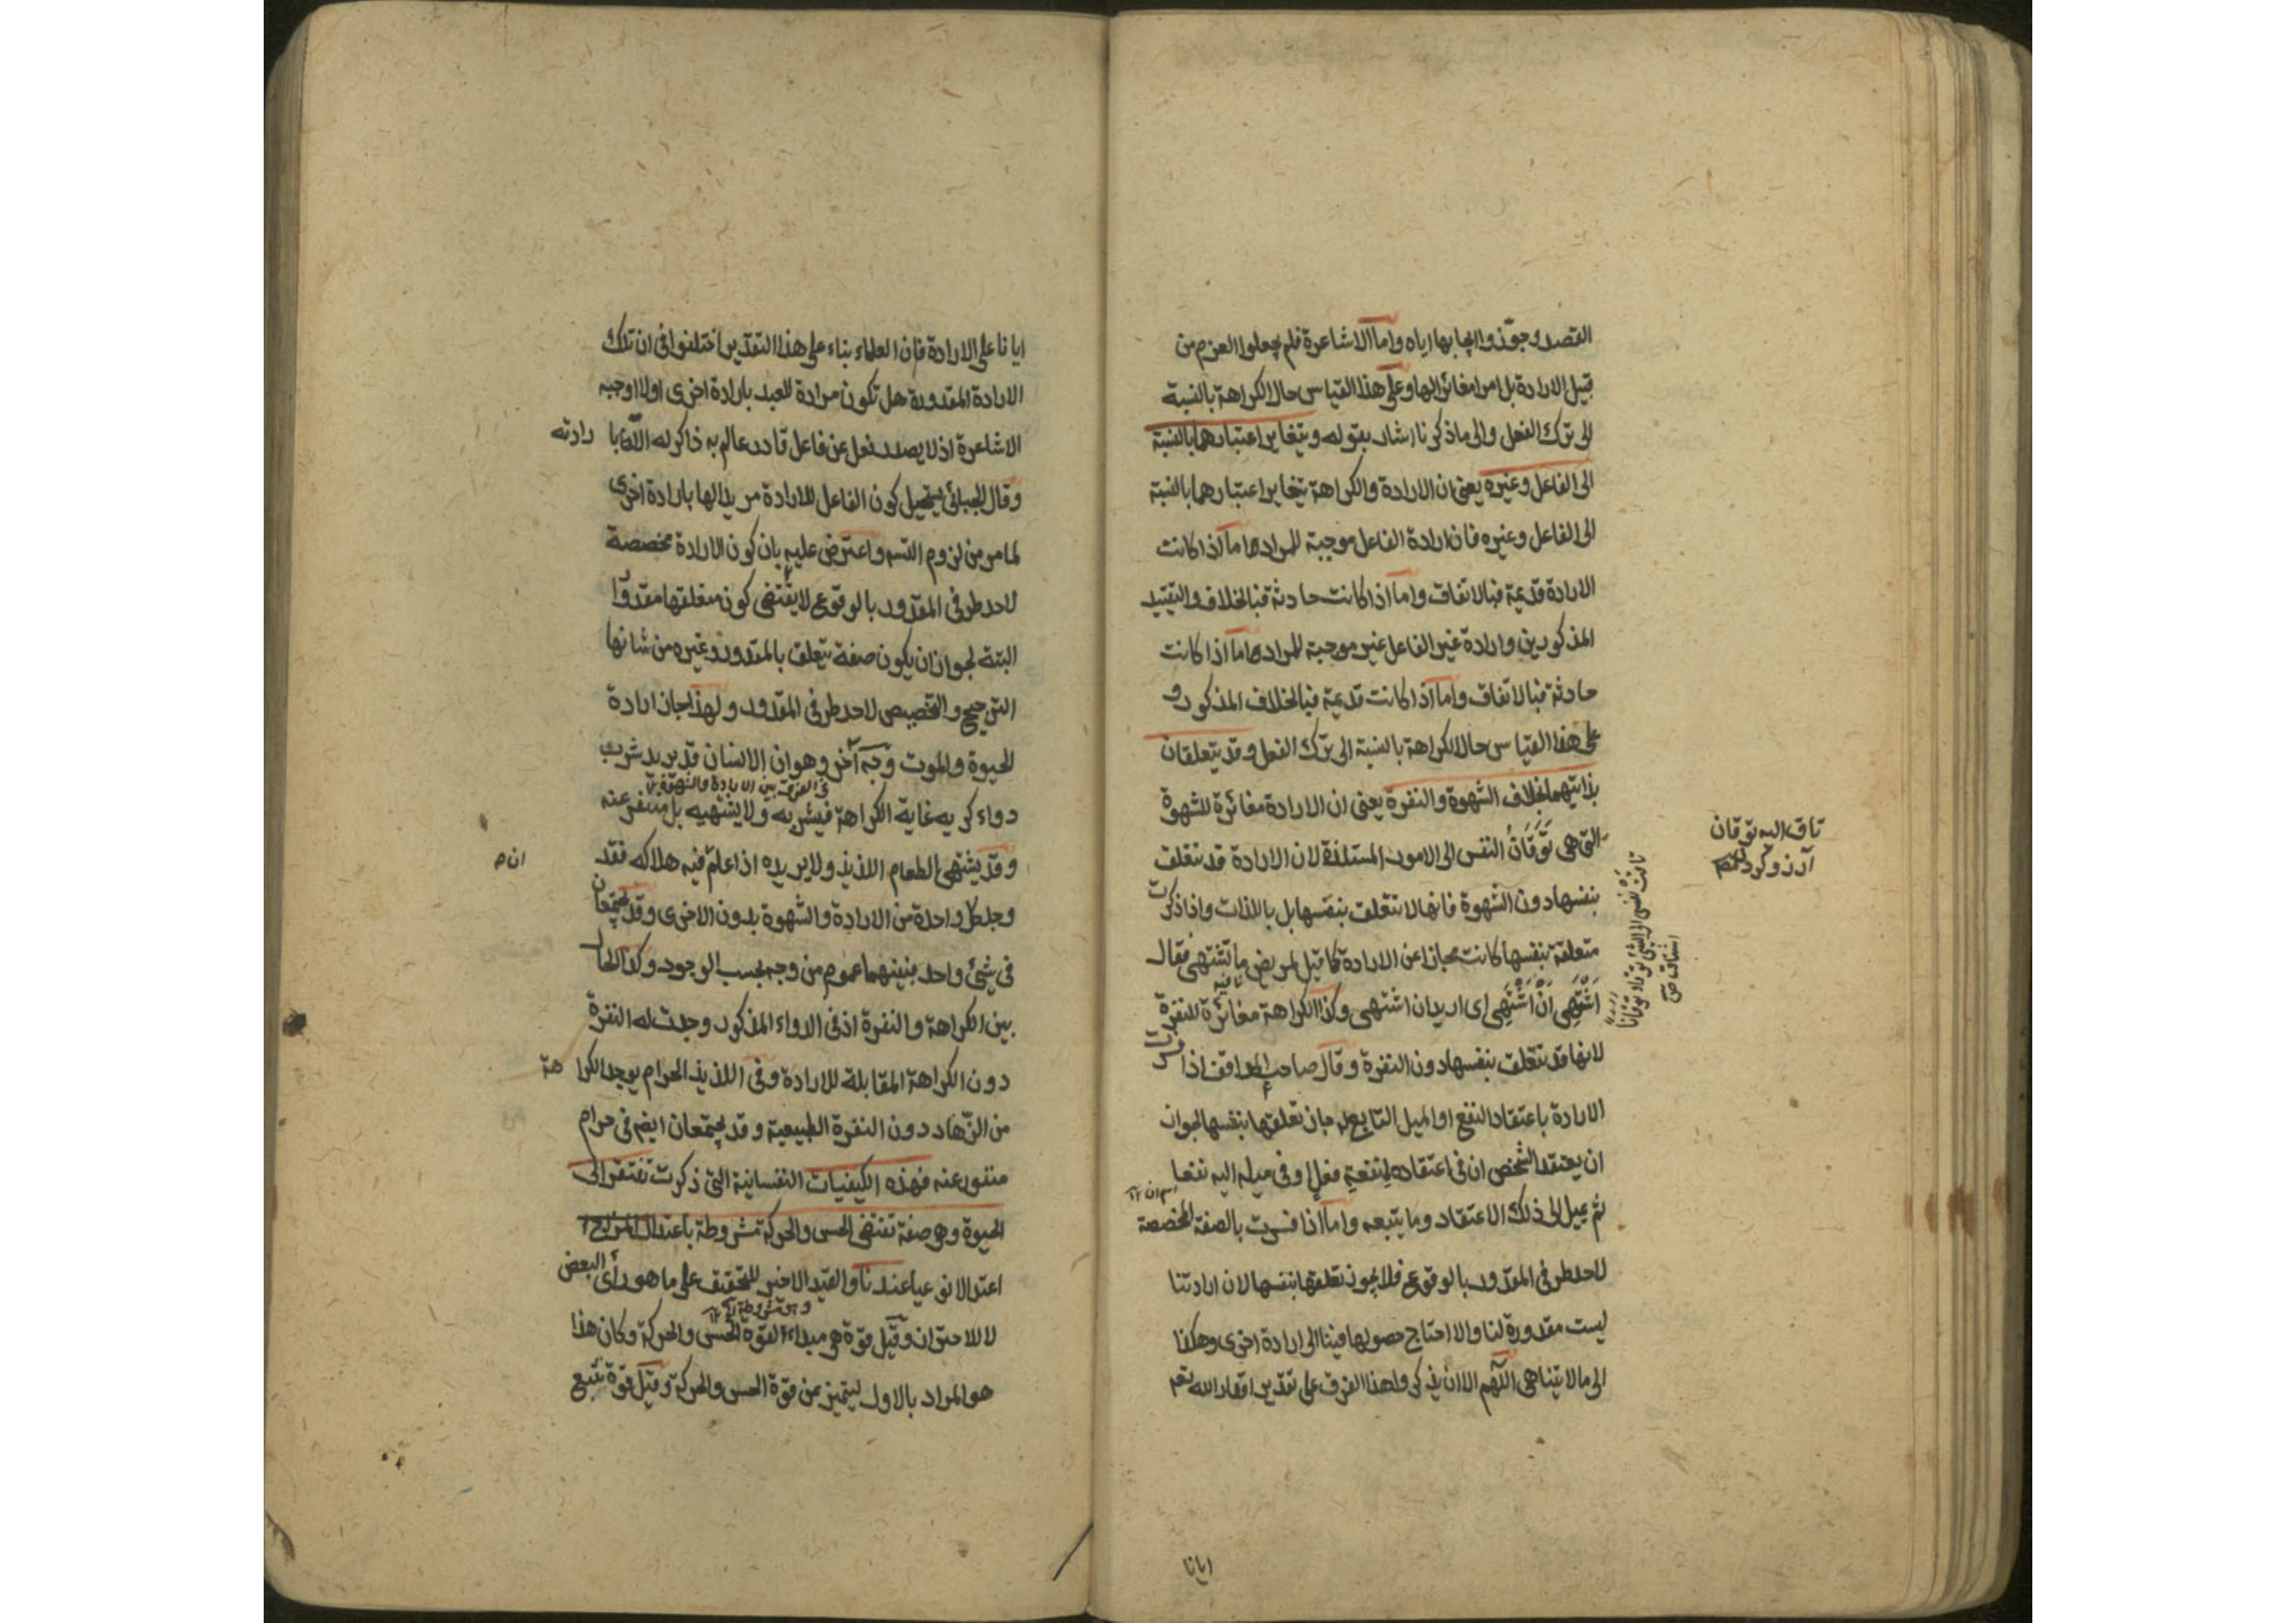 القصد وجوّزوا ايجابها اياه واما الاشاعرة فلم يجعلوا العزم من
قبيل الارادة بل امرا مغائرا لها وعلى هذا القياس حال الكراهة بالنسبة
الى ترك الفعل والى ما ذكرنا اشار بقوله ويتغاير اعتبارهما بالنسبة
الى الفاعل وغيره يعنى ان الارادة والكراهة يتغاير اعتبارهما بالنسبة
الى الفاعل وغيره فان ارادة الفاعل موجبة للمراد اما اذا كانت
الارادة قديمة فبالاتفاق واما اذا كانت حادثة فبالخلاف والتقييد
المذكورين وارادة غير الفاعل غير موجبة للمراد اما اذا كانت
حادثة فبالاتفاق واما اذا كانت قديمة فبالخلاف المذكور و
على هذا القياس حال الكراهة بالنسبة الى ترك الفعل وقد يتعلقان
بذاتيهما بخلاف الشهوة والنفرة يعنى ان الارادة مغائرة للشهوة
التى هى تَوَقَانُ النفس الى الامور المستلذة لان الارادة قد تتعلق
بنفسها دون الشهوة فانها لا تتعلق بنفسها بل باللذات واذا ذكرت
متعلقة بنفسها كانت مجازا عن الارادة كما قيل لمريض ما تشتهى فقال
اَشْتَهِى اَنْ اَشْتَهِى اى اريد ان اشتهى وكذا الكراهة مغائرة للنفرة
لانها قد تتعلق بنفسها دون النفرة وقال صاحب المواقف اذا فسرت
الارادة باعتقاد النفع او الميل التابع له جاز تعلقها بنفسها لجواز
ان يعتقد الشخص ان فى اعتقاده لمنفعة فعل او فى ميله اليه نفعا
ثم يميل الى ذلك الاعتقاد وما يتبعه واما اذا فسرت بالصفة المخصصة
لاحد طرفى المقدور بالوقوع فلا يجوز تعلقها بنفسها لان ارادتنا
ليست مقدورة لنا والا احتاج حصولها فينا الى ارادة اخرى وهكذا
الى ما لا يتناهى اللّهم الا ان يذكر ولهذا الفرق على تقدير اقدار الله تعم
ايانا
تاق اليه توقان
آرزو كرد
تاقت نفسى الى الشئ توقا وتوقانا
اشتاق ص
ايانا على الارادة فان العلماء بناء على هذا التقدير اختلفوا فى ان تلك
الارادة المقدورة هل تكون مرادة للعبد بارادة اخرى او لا اوجبه
الاشاعرة اذ لا يصدر فعل عن فاعل قادر عالم به ذاكر له الا بارادته
وقال الجبائى يستحيل كون الفاعل للارادة مريدا لها بارادة اخرى
لما مر من لزوم التسه واعترض عليه بان كون الارادة مخصصة
لاحد طرفى المقدور بالوقوع لا يقتضى كون متعلقها مقدورا
البتة لجواز ان يكون صفة يتعلق بالمقدور وغيره من شانها
الترجيح والتخصيص لاحد طرفى المقدور ولهذا جاز ارادة
الحيوة والموت وجه آخر وهو ان الانسان قد يريد شرب
فى الفرق بين الارادة والشهوة
دواء كريه غاية الكراهة فيشربه ولا يشتهيه بل متنفر عنه
وقد يشتهى الطعام اللذيذ ولا يريده اذا علم فيه هلاكه فقد
ان ه
وجد كل واحدة من الارادة والشهوة بدون الاخرى وقد يجتمعان
فى شئ واحد فبينهما عموم من وجه بحسب الوجود وكذا الحال
بين الكراهة والنفرة اذ فى الدواء المذكور وجدت له النفرة
دون الكراهة المقابلة للارادة وفى اللذيذ الحرام يوجد الكراهة
من الزهاد دون النفرة الطبيعية وقد يجتمعان ايضا فى حرام
منفور عنه فهذه الكيفيات النفسانية التى ذكرت تفتقر الى
الحيوة وهى صفة تقتضى الحس والحركة مشروطة باعتدال المزاج
اعتدالا نوعيا عندنا والقيد الاخير للتحقيق على ما هو رأى البعض
لا للاحتراز وقيل قوة هى مبداء لقوة الحس والحركة وكان هذا
هو المراد بالاول ليتميز عن قوة الحس والحركة وقيل قوة تتبع